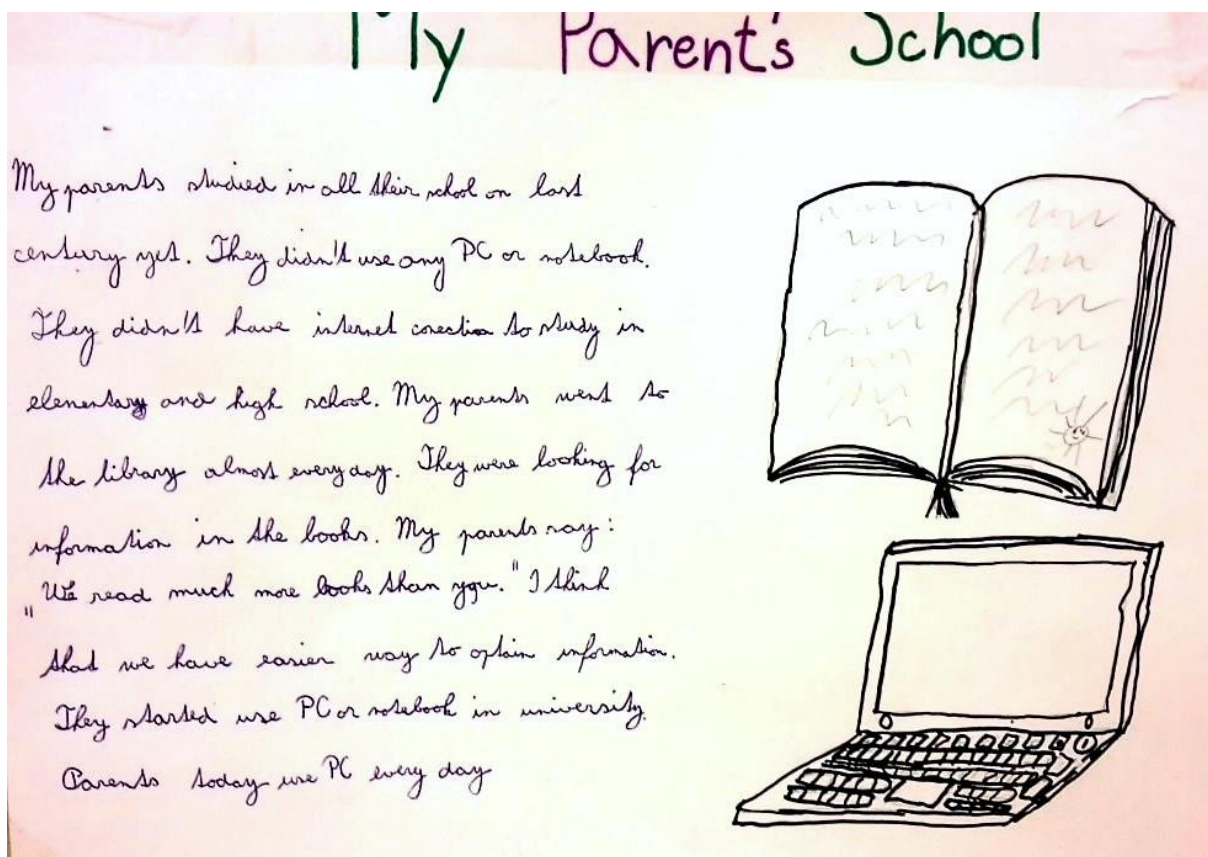 My Parent's School
My parents studied in all their school on last
century yet. They didn't use any PC or notebook.
They didn't have internet conection to study in
elementary and high school. My parents went to
the library almost every day. They were looking for
information in the books. My parents say:
"We read much more books than you." I think
that we have easier way to optain information.
They started use PC or notebook in university.
Parents today use PC every day